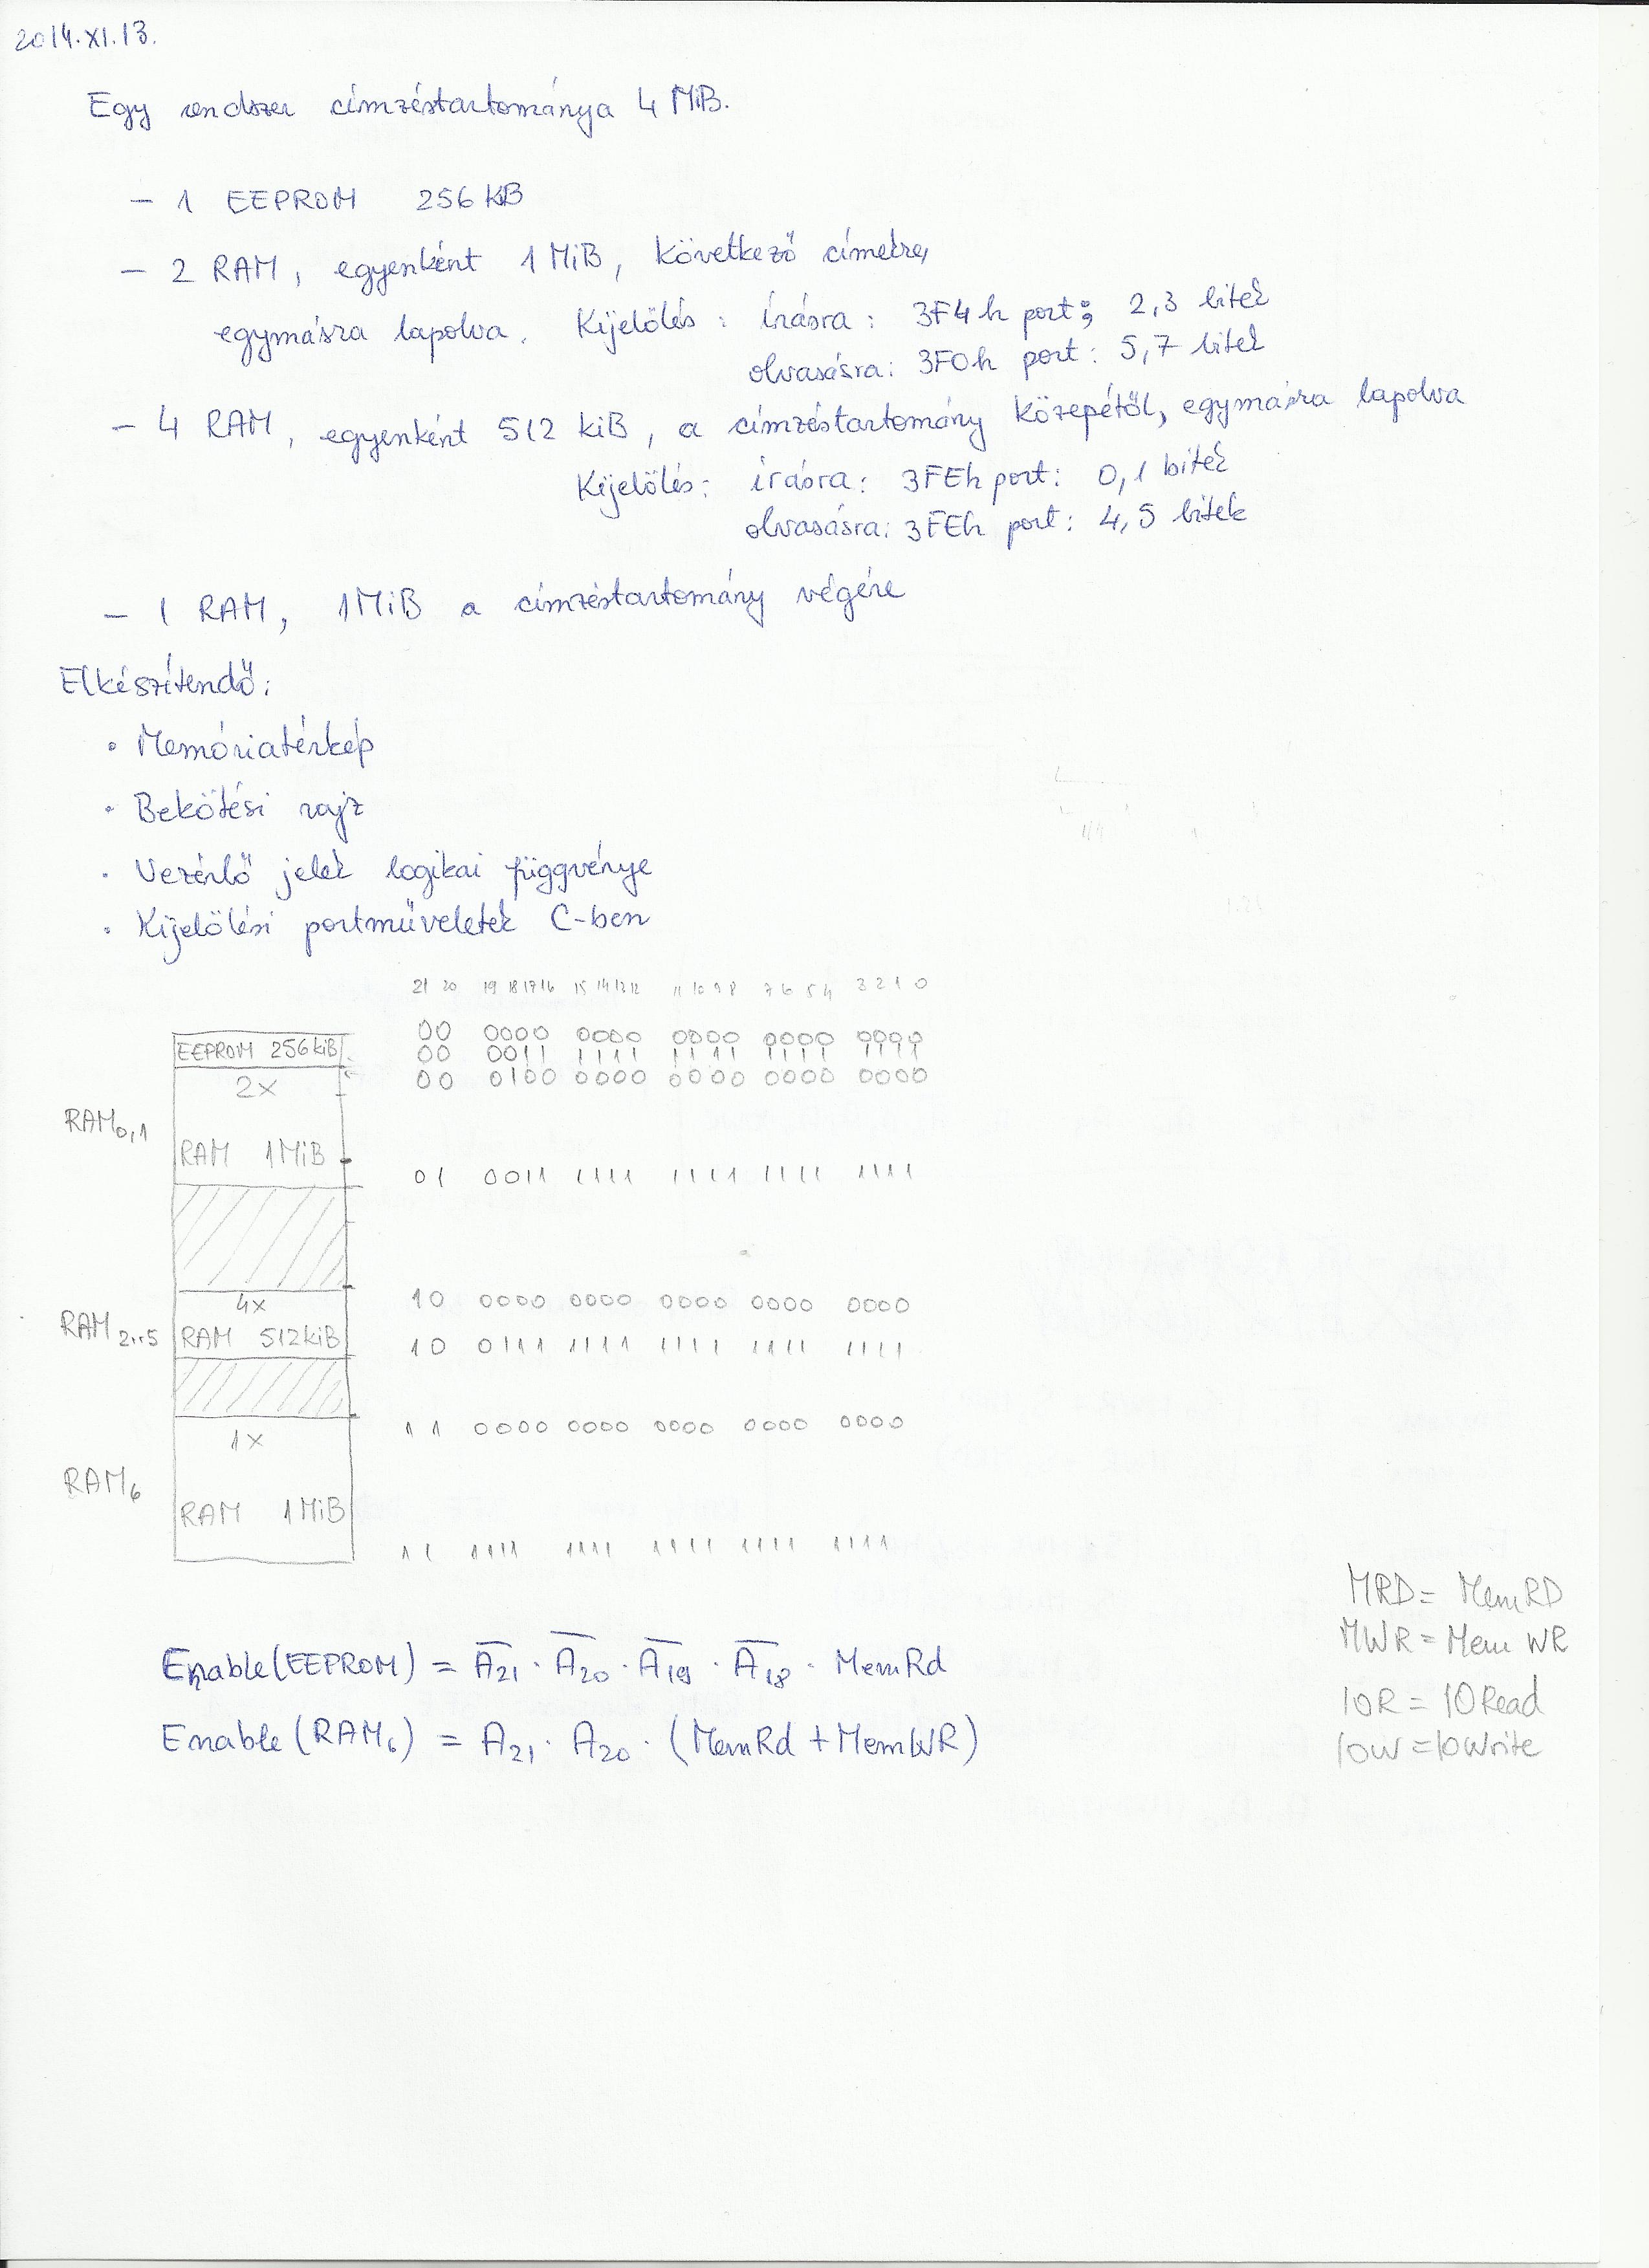 2014.XI.13.
Egy rendszer címzéstartománya 4 MiB.
- 1 EEPROM 256 KB
- 2 RAM, egyenként 1 MiB, következő címekre,
egymásra lapolva. Kijelölés: írásra: 3F4h port; 2,3 bitek
olvasásra: 3F0h port: 5,7 bitek
- 4 RAM, egyenként 512 kiB, a címzéstartomány közepétől, egymásra lapolva
Kijelölés: írásra: 3FEh port: 0,1 bitek
olvasásra: 3FEh port: 4,5 bitek
- 1 RAM, 1MiB a címzéstartomány végére
Elkészítendő:
• Memóriatérkép
• Bekötési rajz
• Vezérlő jelek logikai függvénye
• Kijelölési portműveletek C-ben
21 20 19 18 17 16 15 14 13 12 11 10 9 8 7 6 5 4 3 2 1 0
00 0000 0000 0000 0000 0000
EEPROM 256kiB 00 0011 1111 1111 1111 1111
2x 00 0100 0000 0000 0000 0000
RAM0,1
RAM 1MiB 01 0011 1111 1111 1111 1111
4x 10 0000 0000 0000 0000 0000
RAM2..5 RAM 512kiB 10 0111 1111 1111 1111 1111
1x 11 0000 0000 0000 0000 0000
RAM6
RAM 1MiB 11 1111 1111 1111 1111 1111
MRD = MemRD
MWR = Mem WR
IOR = IORead
IOW = IOWrite
Enable(EEPROM) = A̅21 · A̅20 · A̅19 · A̅18 · MemRd
Enable(RAM6) = A21 · A20 · (MemRd + MemWR)